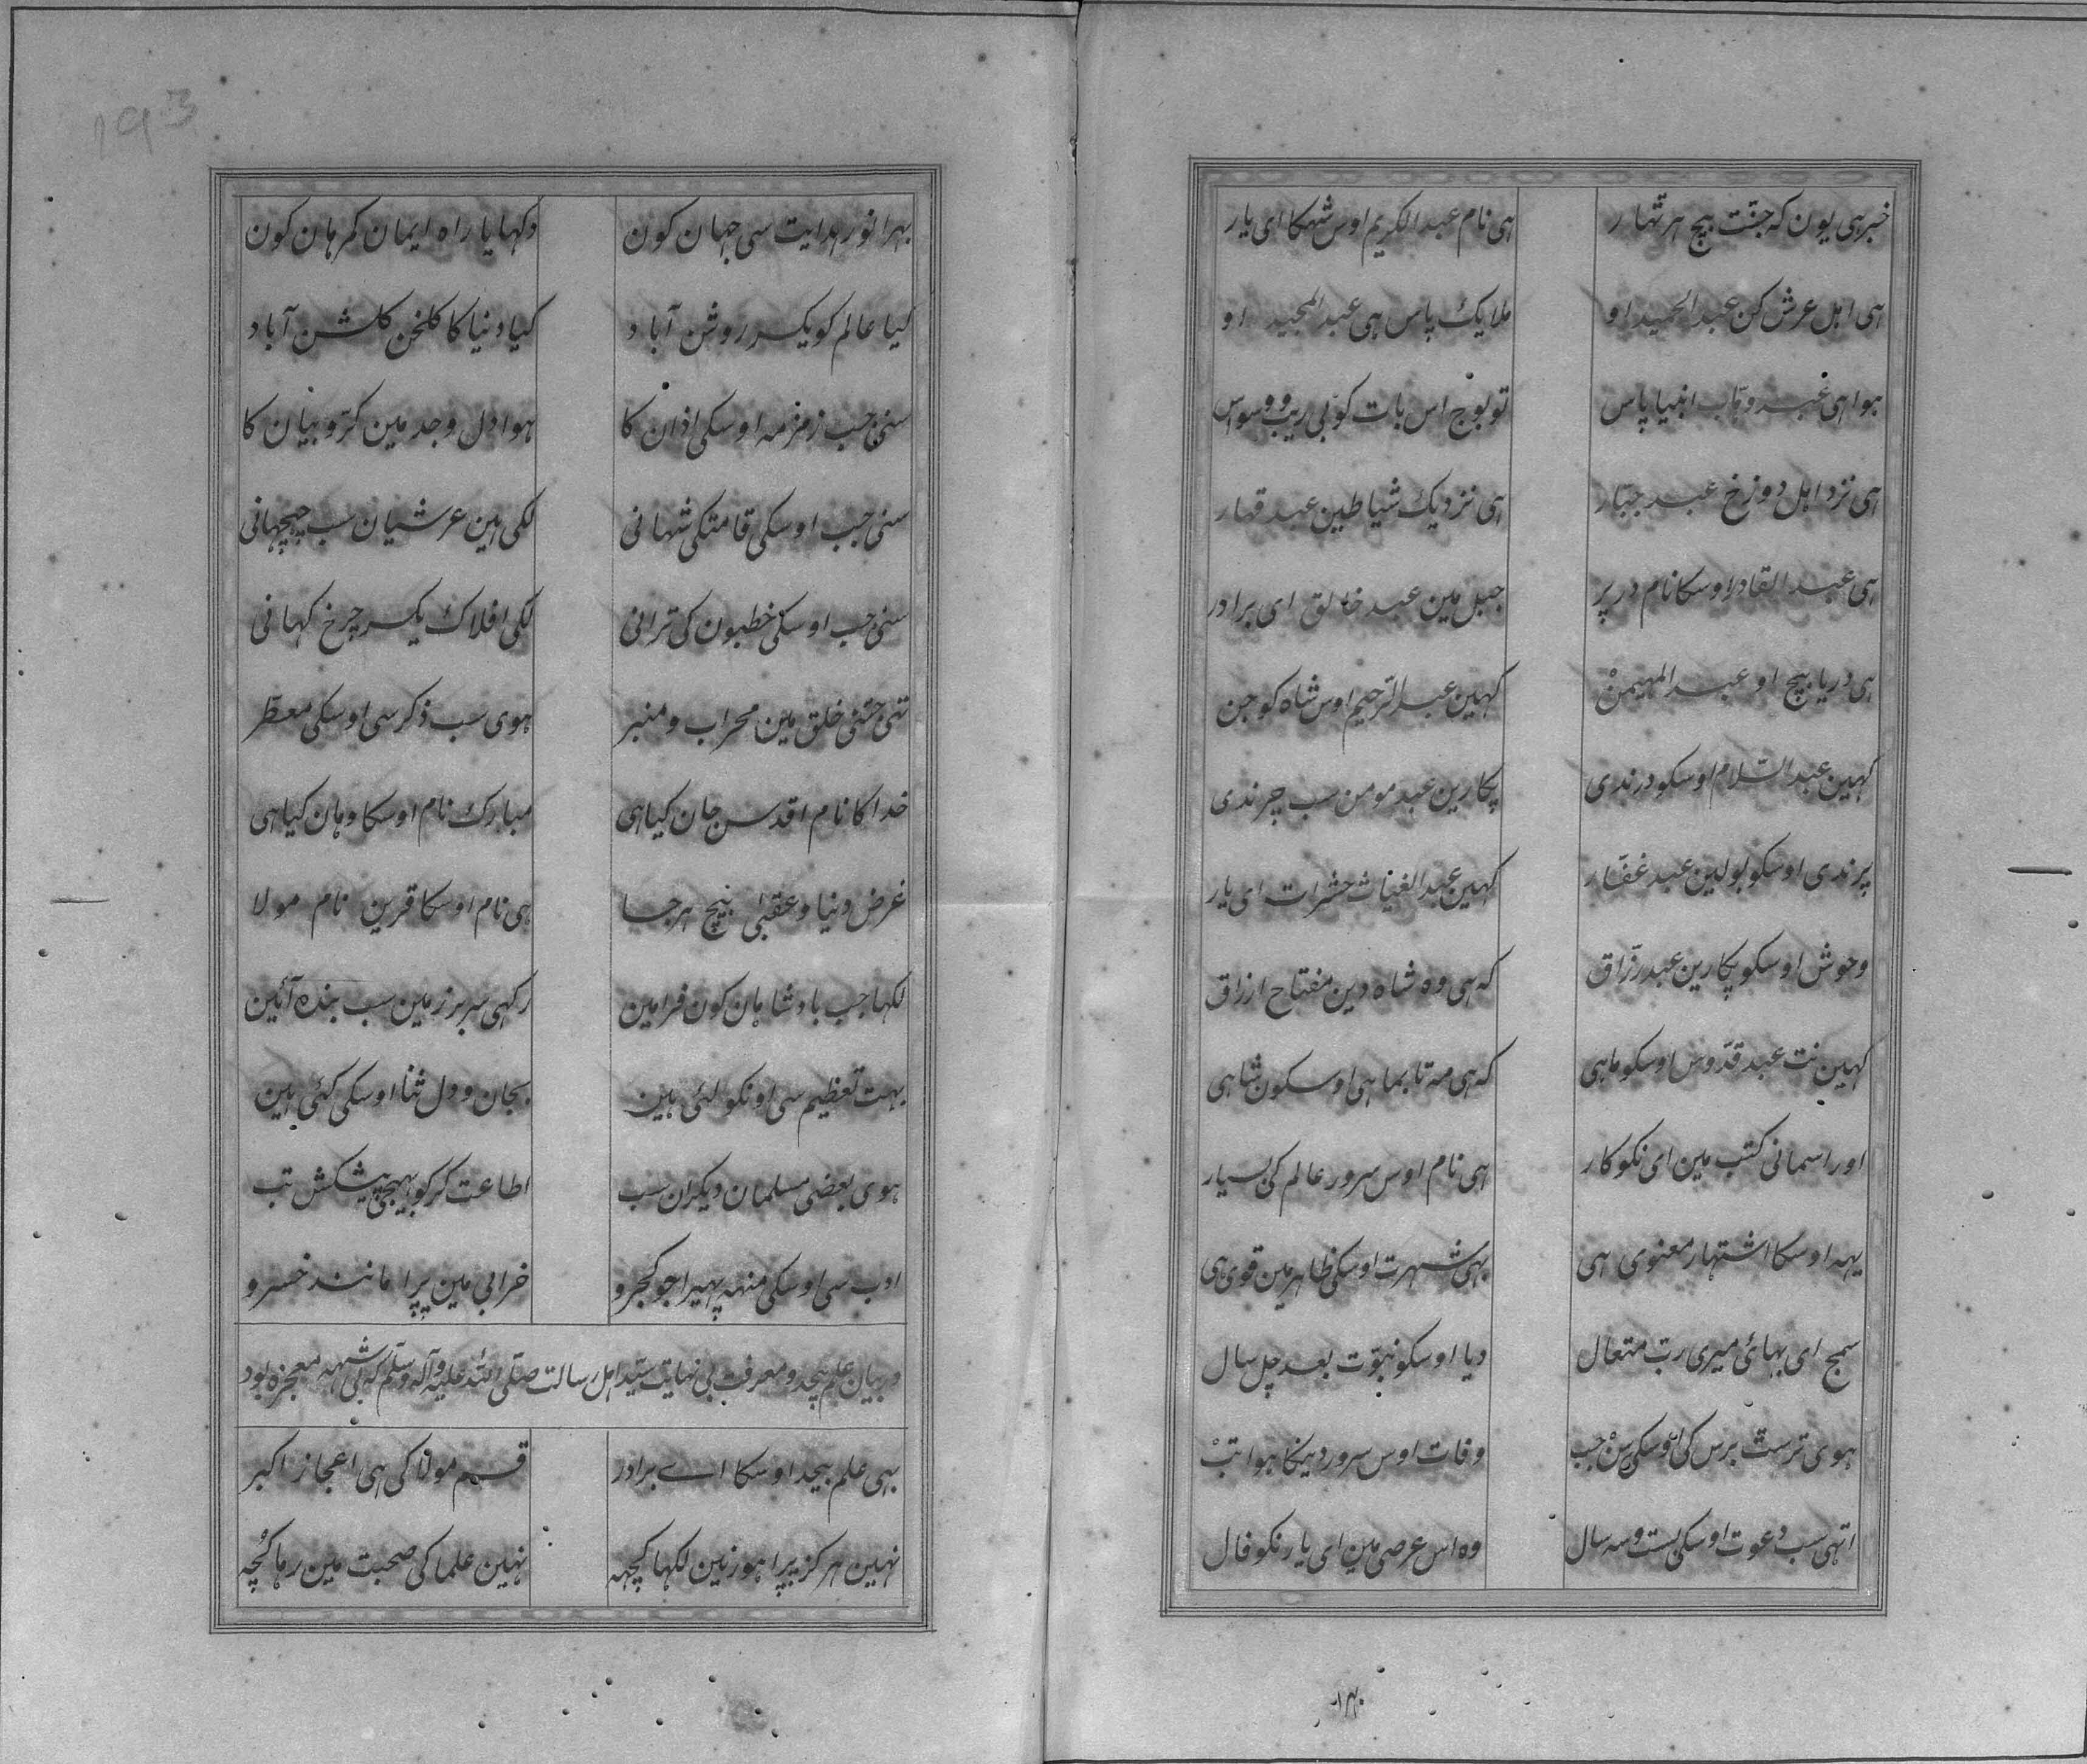 خبر ہی یون کہ جنّت بیچ ہر تہار
ہی نام عبد الکریم اوس شہکا ای یار
ہی اہل عرش کن عبد الحمید او
ملایک پاس ہی عبد المجید او
ہوا ہی عبد وہّاب انبیا پاس
تو بوج اس بات کو بی ریب و وسواس
ہی نزد اہل دوزخ عبد جبّار
ہی نزدیک شیاطین عبد قہار
ہی عبد القادر اوسکا نام در بر
جبل مین عبد خالق ای برادر
ہی دریا بیچ او عبد المہیمنْ
کہین عبد الرّحیم اوس شاہ کو جن
کہین عبد السّلام اوسکو درندی
پکارین عبد مومن سب چرندی
پرندی اوسکو بولین عبد غفّار
کہین عبد الغیاث حشرات ای یار
وحوش اوسکو پکارین عبد رزّاق
کہ ہی وہ شاہ دین مفتاح ارزاق
کہین نت عبد قدّوس اوسکو ماہی
کہ ہی مہ تا بماہی اوسکون شاہی
اور اسمانی کتب مین ای نکوکار
ہی نام اوس سرور عالم کی بسیار
یہہ اوسکا اشتہار معنوی ہی
بہی شہرت اوسکی ظاہر مین قوی ہی
سمج ای بہائی میری ربّ متعال
دیا اوسکو نبوّت بعد چل سال
ہوی ترسٹ برس کی اوسکی سنْ جب
وفات اوس سرور دینکا ہوا تبْ
اتہی سب دعوت اوسکی بست و سہ سال
وہ اس عرصی مین ای یار نکو فال
بہرا
بہرا نور ہدایت سی جہان کون
دکہایا راہ ایمان کمرہان کون
کیا عالم کو یکسر روشن آباد
کیا دنیا کا کلخن کلشن آباد
سنی جب زمزمہ اوسکی اذان کا
ہوا دل وجد مین کرّوبیان کا
سنی جب اوسکی قامتکی شہانی
لکی ہین عرشیان سب چہچہانی
سنی جب اوسکی خطبون کی ترانی
لکی افلاک یکسر چرخ کہانی
تہی جتنی خلق مین محراب و منبر
ہوی سب ذکر سی اوسکی معطّر
خدا کا نام اقدس جان کیا ہی
مبارک نام اوسکا وہان کیا ہی
غرض دنیا و عقبیٰ بیچ ہر جا
ہی نام اوسکا قرین نام مولا
لکہا جب بادشاہان کون فرامین
رکہی سر بر زمین سب بندہ آئین
بہت تعظیم سی اونکو لئی ہین
بجان و دل ثنا اوسکی کئی ہین
ہوی بعضی مسلمان دیکران سب
اطاعت کر کو بہیجی پیشکش تب
ادب سی اوسکی منہہ پہیرا جو کجرو
خرابی مین پرا مانند خسرو
در بیان علم بیحد و معرفت بی نہایت سیّد اہل رسالت صلّی اللہ علیہ وآلہ وسلّم کہ بی شبہہ معجزہ بود
بہی علم بیحد اوسکا اے برادر
قسم مولا کی ہی اعجاز اکبر
نہین ہرکز پرا ہور نین لکہا کچہہ
نہین علما کی صحبت مین رہا کچہہ